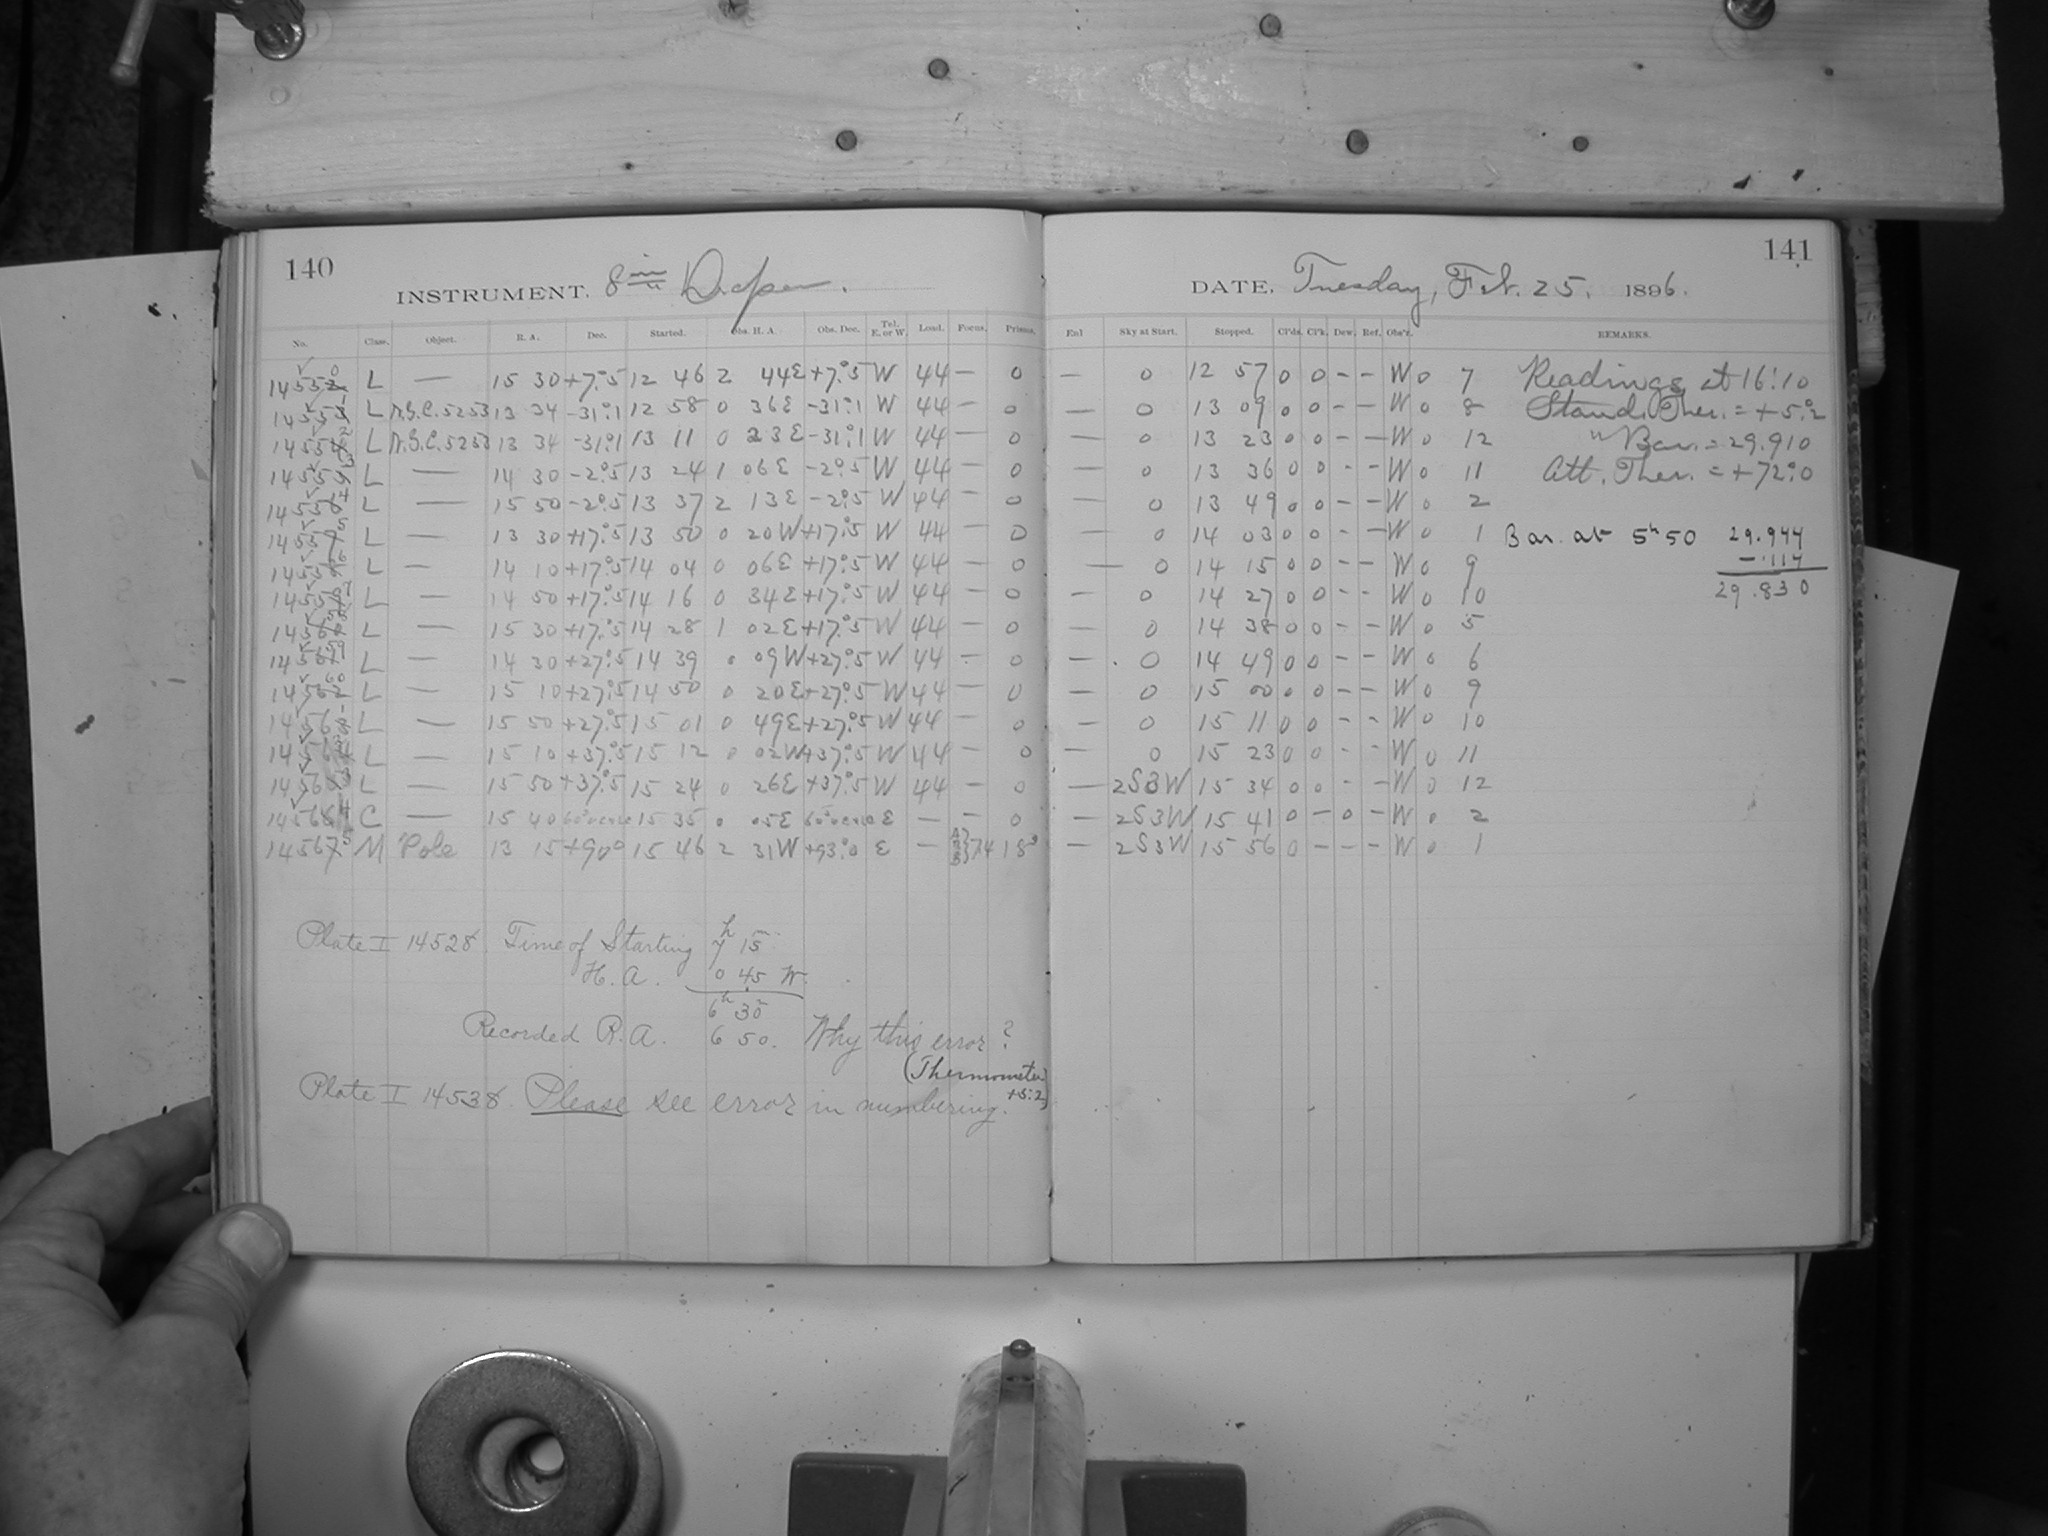 140
INSTRUMENT. 8 in Draper.
No. Class. Object. R. A. Dec. Started. Obs. H. A. Obs. Dec. Tel. E. or W. Load. Focus. Prisms.
14552 0 L — 15 30 +7°.5 12 46 2 44E +7°.5 W 44 — 0
14553 1 L N.G.C. 5253 13 34 -31°.1 12 58 0 36E -31°.1 W 44 — 0
14554 2 L N.G.C. 5253 13 34 -31°.1 13 11 0 23E -31°.1 W 44 — 0
14555 3 L — 14 30 -2°.5 13 24 1 06E -2°.5 W 44 — 0
14556 4 L — 15 50 -2°.5 13 37 2 13E -2°.5 W 44 — 0
14557 5 L — 13 30 +17°.5 13 50 0 20W +17°.5 W 44 — 0
14558 6 L — 14 10 +17°.5 14 04 0 06E +17°.5 W 44 — 0
14559 7 L — 14 50 +17°.5 14 16 0 34E +17°.5 W 44 — 0
14560 58 L — 15 30 +17°.5 14 28 1 02E +17°.5 W 44 — 0
14561 59 L — 14 30 +27°.5 14 39 0 09W +27°.5 W 44 - 0
14562 60 L — 15 10 +27°.5 14 50 0 20E +27°.5 W 44 — 0
14563 1 L — 15 50 +27°.5 15 01 0 49E +27°.5 W 44 — 0
14564 2 L — 15 10 +37°.5 15 12 0 02W +37°.5 W 44 — 0
14565 3 L — 15 50 +37°.5 15 24 0 26E +37°.5 W 44 — 0
14566 4 C — 15 40 15 35 0 05E E — — 0
14567 5 M Pole 13 15 +90° 15 46 2 31W +93°.0 E — 74 18°
Plate I 14528. Time of Starting 7h 15m
H. A. 0 45 W.
6h 30m
Recorded R. A. 6 50. Why this error?
(Thermometer +5°.2)
Plate I 14538. Please see error in numbering.
141
DATE, Tuesday, Feb. 25, 1896.
Enl Sky at Start. Stopped. Cl'ds. Cl'k. Dew. Ref. Obs'r. REMARKS.
— 0 12 57 0 0 - - W 0 7 Readings at 16:10
— 0 13 09 0 0 - - W 0 8 Stand. Ther. = +5°.2
— 0 13 23 0 0 - - W 0 12 " Bar. = 29.910
— 0 13 36 0 0 - - W 0 11 Att. Ther. = +72°.0
— 0 13 49 0 0 - - W 0 2
— 0 14 03 0 0 - - W 0 1 Bar. at 5h 50 29.944
— 0 14 15 0 0 - - W 0 9 -.114
— 0 14 27 0 0 - - W 0 10 29.830
— 0 14 38 0 0 - - W 0 5
— 0 14 49 0 0 - - W 0 6
— 0 15 00 0 0 - - W 0 9
— 0 15 11 0 0 - - W 0 10
— 0 15 23 0 0 - - W 0 11
— 2S3W 15 34 0 0 - - W 0 12
— 2S3W 15 41 0 - 0 - W 0 2
— 2S3W 15 56 0 - - - W 0 1